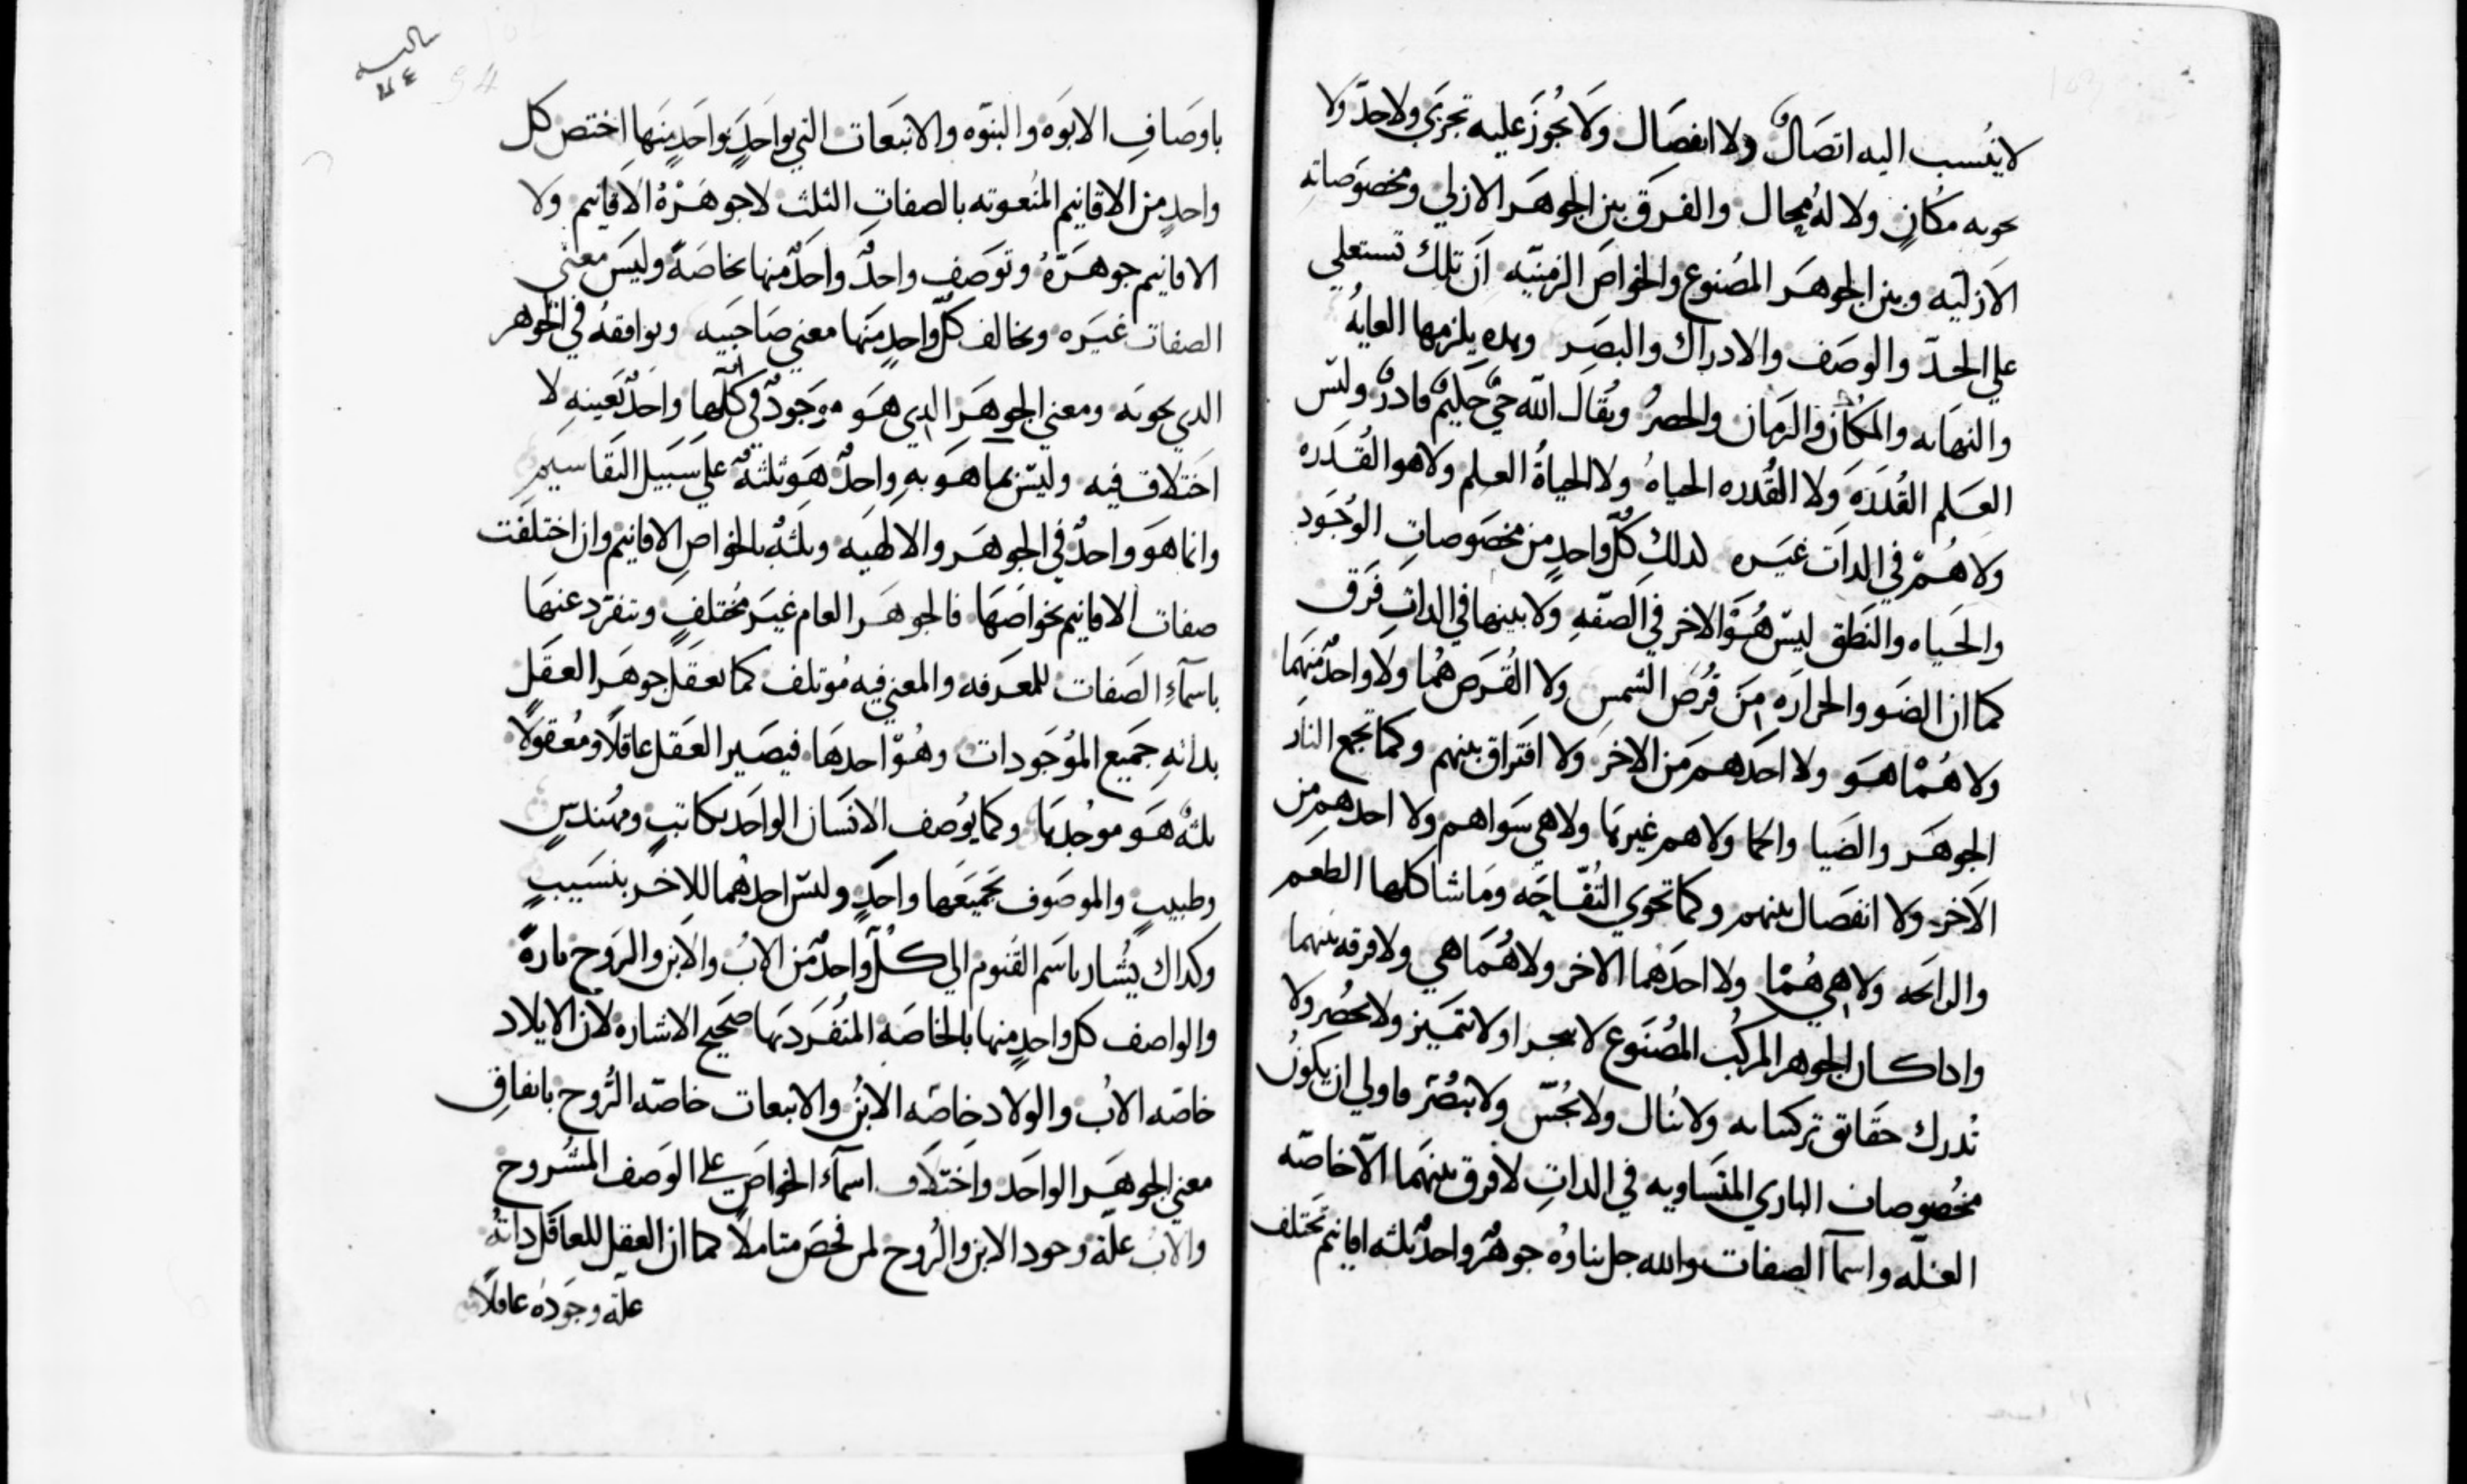 لا ينسب اليه اتصالٌ ولا انفصال ولا يجوز عليه تجزي ولا حدّ ولا
يحويه مكانٍ ولا له مجال والفرق بين الجوهر الازلي ومخصوصاته
الازليه وبين الجوهر المصنوع والخواص الزمنيّه ان تلك تستعلي
علي الحدّ والوصف والادراك والبصر وهده يلزمها الغايهُ
والنهايه والمكان والزمان والحصرُ ويقال الله حيٌ حكيمٌ قادرٌ وليس
العلم القُدره ولا القُدره الحياه ولا الحياةُ العلم ولا هو القُدره
ولا هُم في الدات غيره لدلك كلّ واحدٍ من مخصوصات الوجود
والحياه والنطق ليس هُوَ الاخر في الصفهِ ولا بينها في الداتِ فرق
كما ان الضو والحراره من قُرص الشمس ولا القُرص هُما ولا واحدٌ منهما
ولا هُمْا هو ولا احدهم من الاخر ولا افتراق بينهم وكما تجمع النار
الجوهر والضيا والحما ولا هم غيرها ولا هي سواهم ولا احدهم من
الاخر ولا انفصال بينهم وكما تحوي التُفّاحه وما شاكلها الطعم
والرائحه ولا هي هُمْا ولا احدهما الاخر ولا هُمَا هي ولا فرقه بينهما
وادا كان الجوهر المركُب المصُنوع لا يتميز ولا يحُصر ولا
تُدرك حقائق تركيباته ولا يُنال ولا يُحسّ ولا يبُصَر فاولي ان يكونُ
مخُصوصات الباري المتساويه في الداتِ لا فرق بينهما الاّ خاصّه
العلّه واسمآ الصفات والله جل ثناوُه جوهرٌ واحدٌ ثلثه اقانيم تختلف
باوصافِ الابوه والبنوّه والانبعاث التي بواحدٍ بواحدٍ منها اختص كل
واحدٍ من الاقانيم المنُعوته بالصفات الثلث لا جوهرهُ الاقانيم ولا
الاقانيم جوهرهُ وتوصف واحدٌ واحدٌ منها بخاصهً وليس معنى
الصفات غيره ويخالف كلّ واحدٍ منها معني صاحبيه ويوافقهُ في الجوهر
الدي يحويه ومعني الجوهر الدي هو موجودٌ في كلّها واحدٌ بعينهِ لا
اختلاف فيه وليس بما هو بهِ واحدٌ هو ثلثهٌ علي سبيل التقاسيم
وانما هو واحدٌ في الجوهر والالهيه وثلثهٌ بالخواصِ الاقانيم وان اختلفت
صفات الاقانيم بخواصها فالجوهر العام غير مُختلفٍ وتنفرّد عنها
باسمآءِ الصفات للمعرفه والمعني فيه مُوتلف كما يعقل جوهر العقلِ
بداتهِ جميع الموُجودات وهُوّ احدها فيصير العقل عاقلاً ومُعقولاً
ثلثهٌ هو موجُدها وكما يوُصف الانسان الواحد بكاتبٍ ومهُندسٍ
وطبيبٍ والموصوف بجميعها واحدٍ وليس احدهُما للاخر بنسيبٍ
وكداك يشُار باسم القنوم الي كلّ واحدٌ من الابُ والابن والروح تارةً
والواصف كل واحدٍ منها بالخاصه المنُفرد بها صحيح الاشاره لان الايلاد
خاصّه الابُ والولاد خاصّه الابنُ والانبعاث خاصّه الرُوح باتفاقِ
معني الجوهر الواحد واختلاف اسمآء الخواص علي الوصف المشُروح
والابُ علّة وجود الابن والرُوح لمن فحص متاملاً كما ان العقل للعاقل داتهُ
علّة وجودهُ عاقلاً